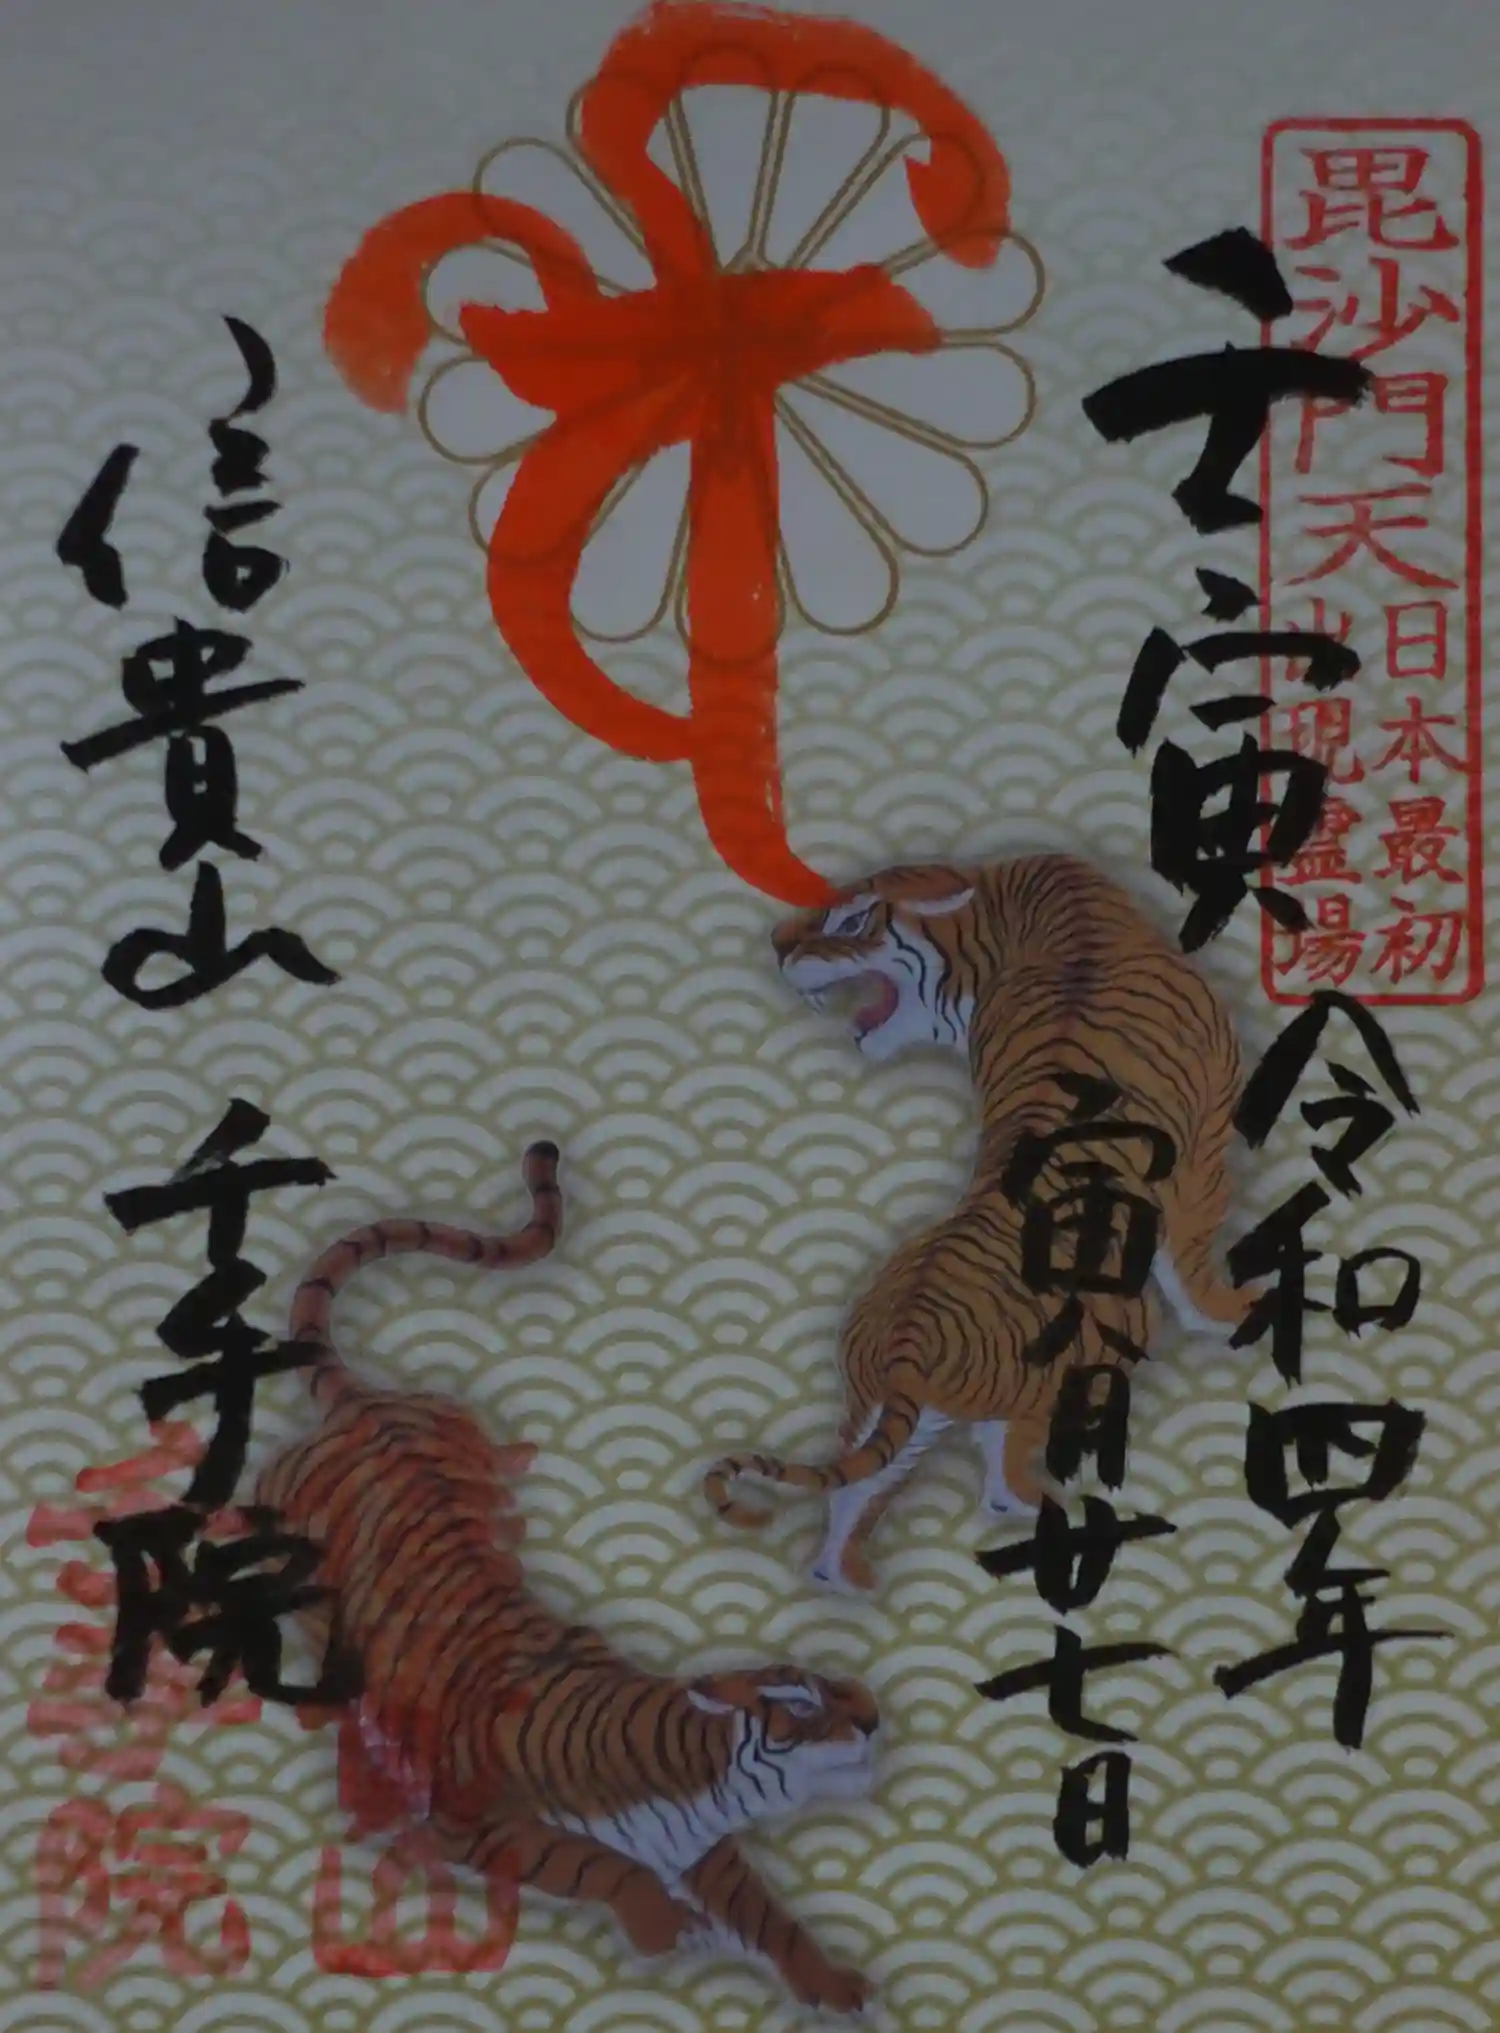 毘沙門天
日本最初
出現霊場
壬寅 令和四年
寅月廿七日
信貴山 千手院